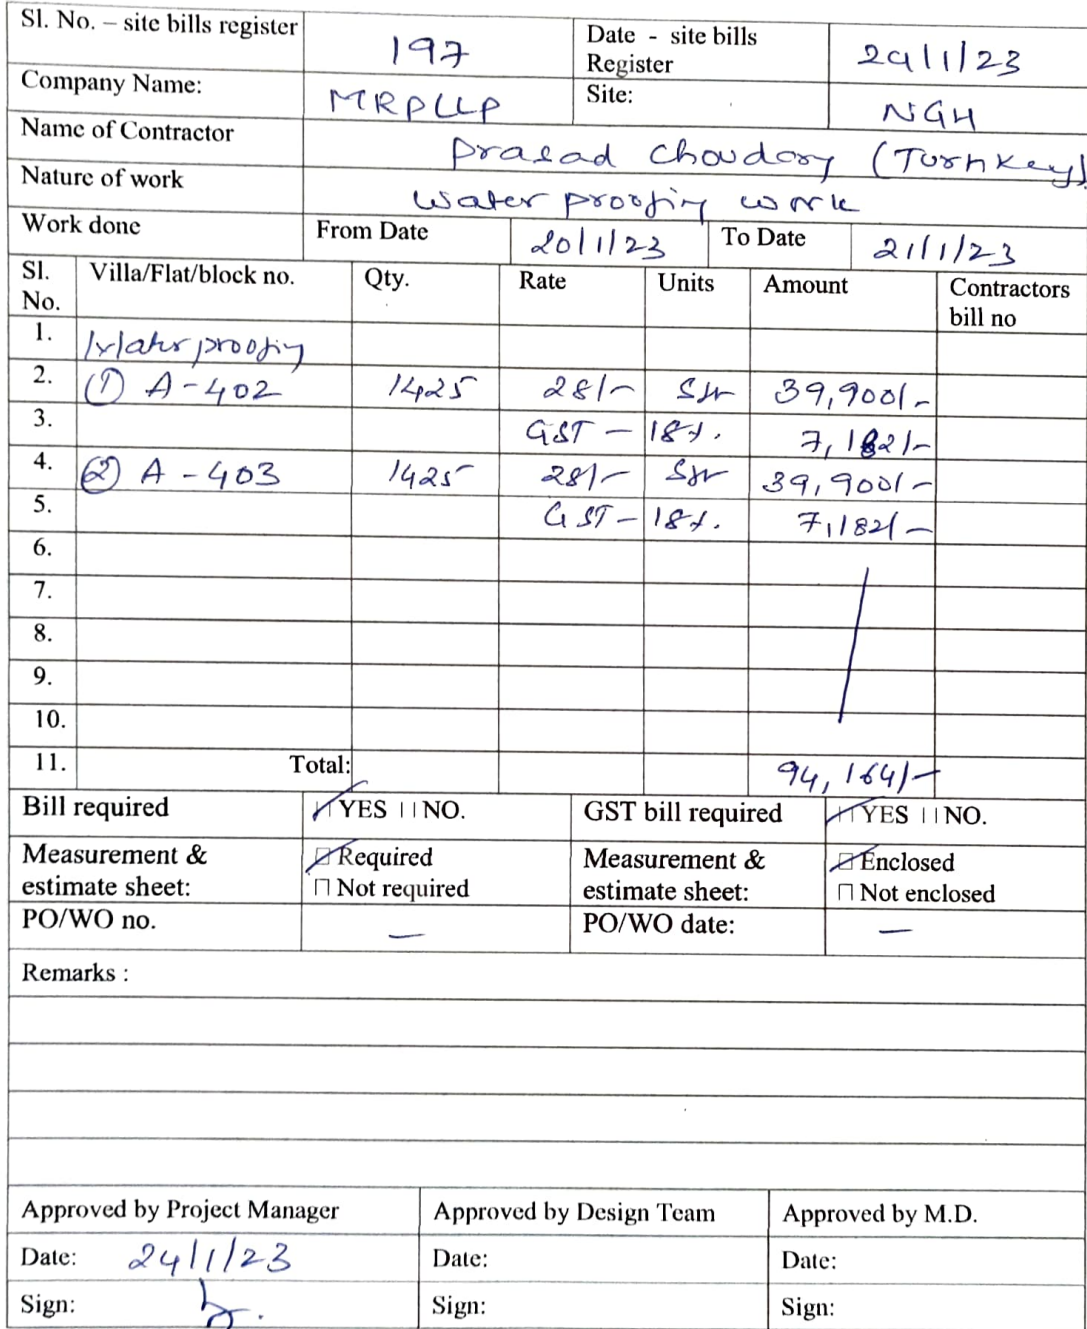 Sl. No. – site bills register 197 Date - site bills Register 24/1/23
Company Name: MRPLLP Site: NGH
Name of Contractor Prasad Choudory (Turnkey)
Nature of work Water proofing work
Work done From Date 20/1/23 To Date 21/1/23
Sl. No. Villa/Flat/block no. Qty. Rate Units Amount Contractors bill no
1. Water proofing
2. (1) A-402 1425 28/- Sft 39,900/-
3. GST - 18%. 7,182/-
4. (2) A-403 1425 28/- Sft 39,900/-
5. GST - 18%. 7,182/-
6.
7.
8.
9.
10.
11. Total: 94,164/-
Bill required YES NO. GST bill required YES NO.
Measurement & estimate sheet: Required Measurement & estimate sheet: Enclosed
Not required Not enclosed
PO/WO no. — PO/WO date: —
Remarks :
Approved by Project Manager Approved by Design Team Approved by M.D.
Date: 24/1/23 Date: Date:
Sign: Sign: Sign: